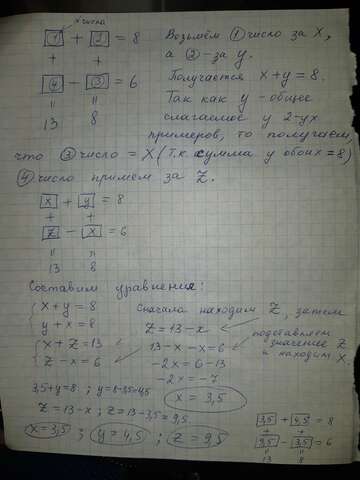 числа
1 + 2 = 8
+ +
4 - 3 = 6
॥ ॥
13 8
Возьмём ① число за X,
а ② - за y.
Получается x+y=8.
Так как y - общее
слагаемое у 2-ух
примеров, то получаем,
что ③ число = X (т.к. сумма у обоих = 8)
④ число примем за Z.
x + y = 8
+ +
z - x = 6
॥ ॥
13 8
Составим уравнения:
x+y=8
y+x=8
x+z=13
z-x=6
Сначала находим Z, затем
подставляем
значение Z
и находим X.
z=13-x
13-x-x=6
-2x=6-13
-2x=-7
x=3,5
3,5+y=8; y=8-3,5=4,5
z=13-x; z=13-3,5=9,5
x=3,5; y=4,5; z=9,5
3,5 + 4,5 = 8
+ +
9,5 - 3,5 = 6
॥ ॥
13 8